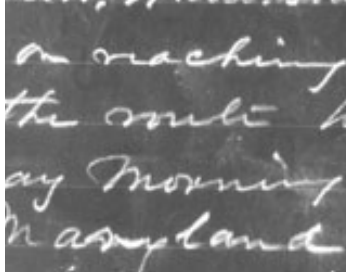 on reaching
the route
ay Morning
Maryland